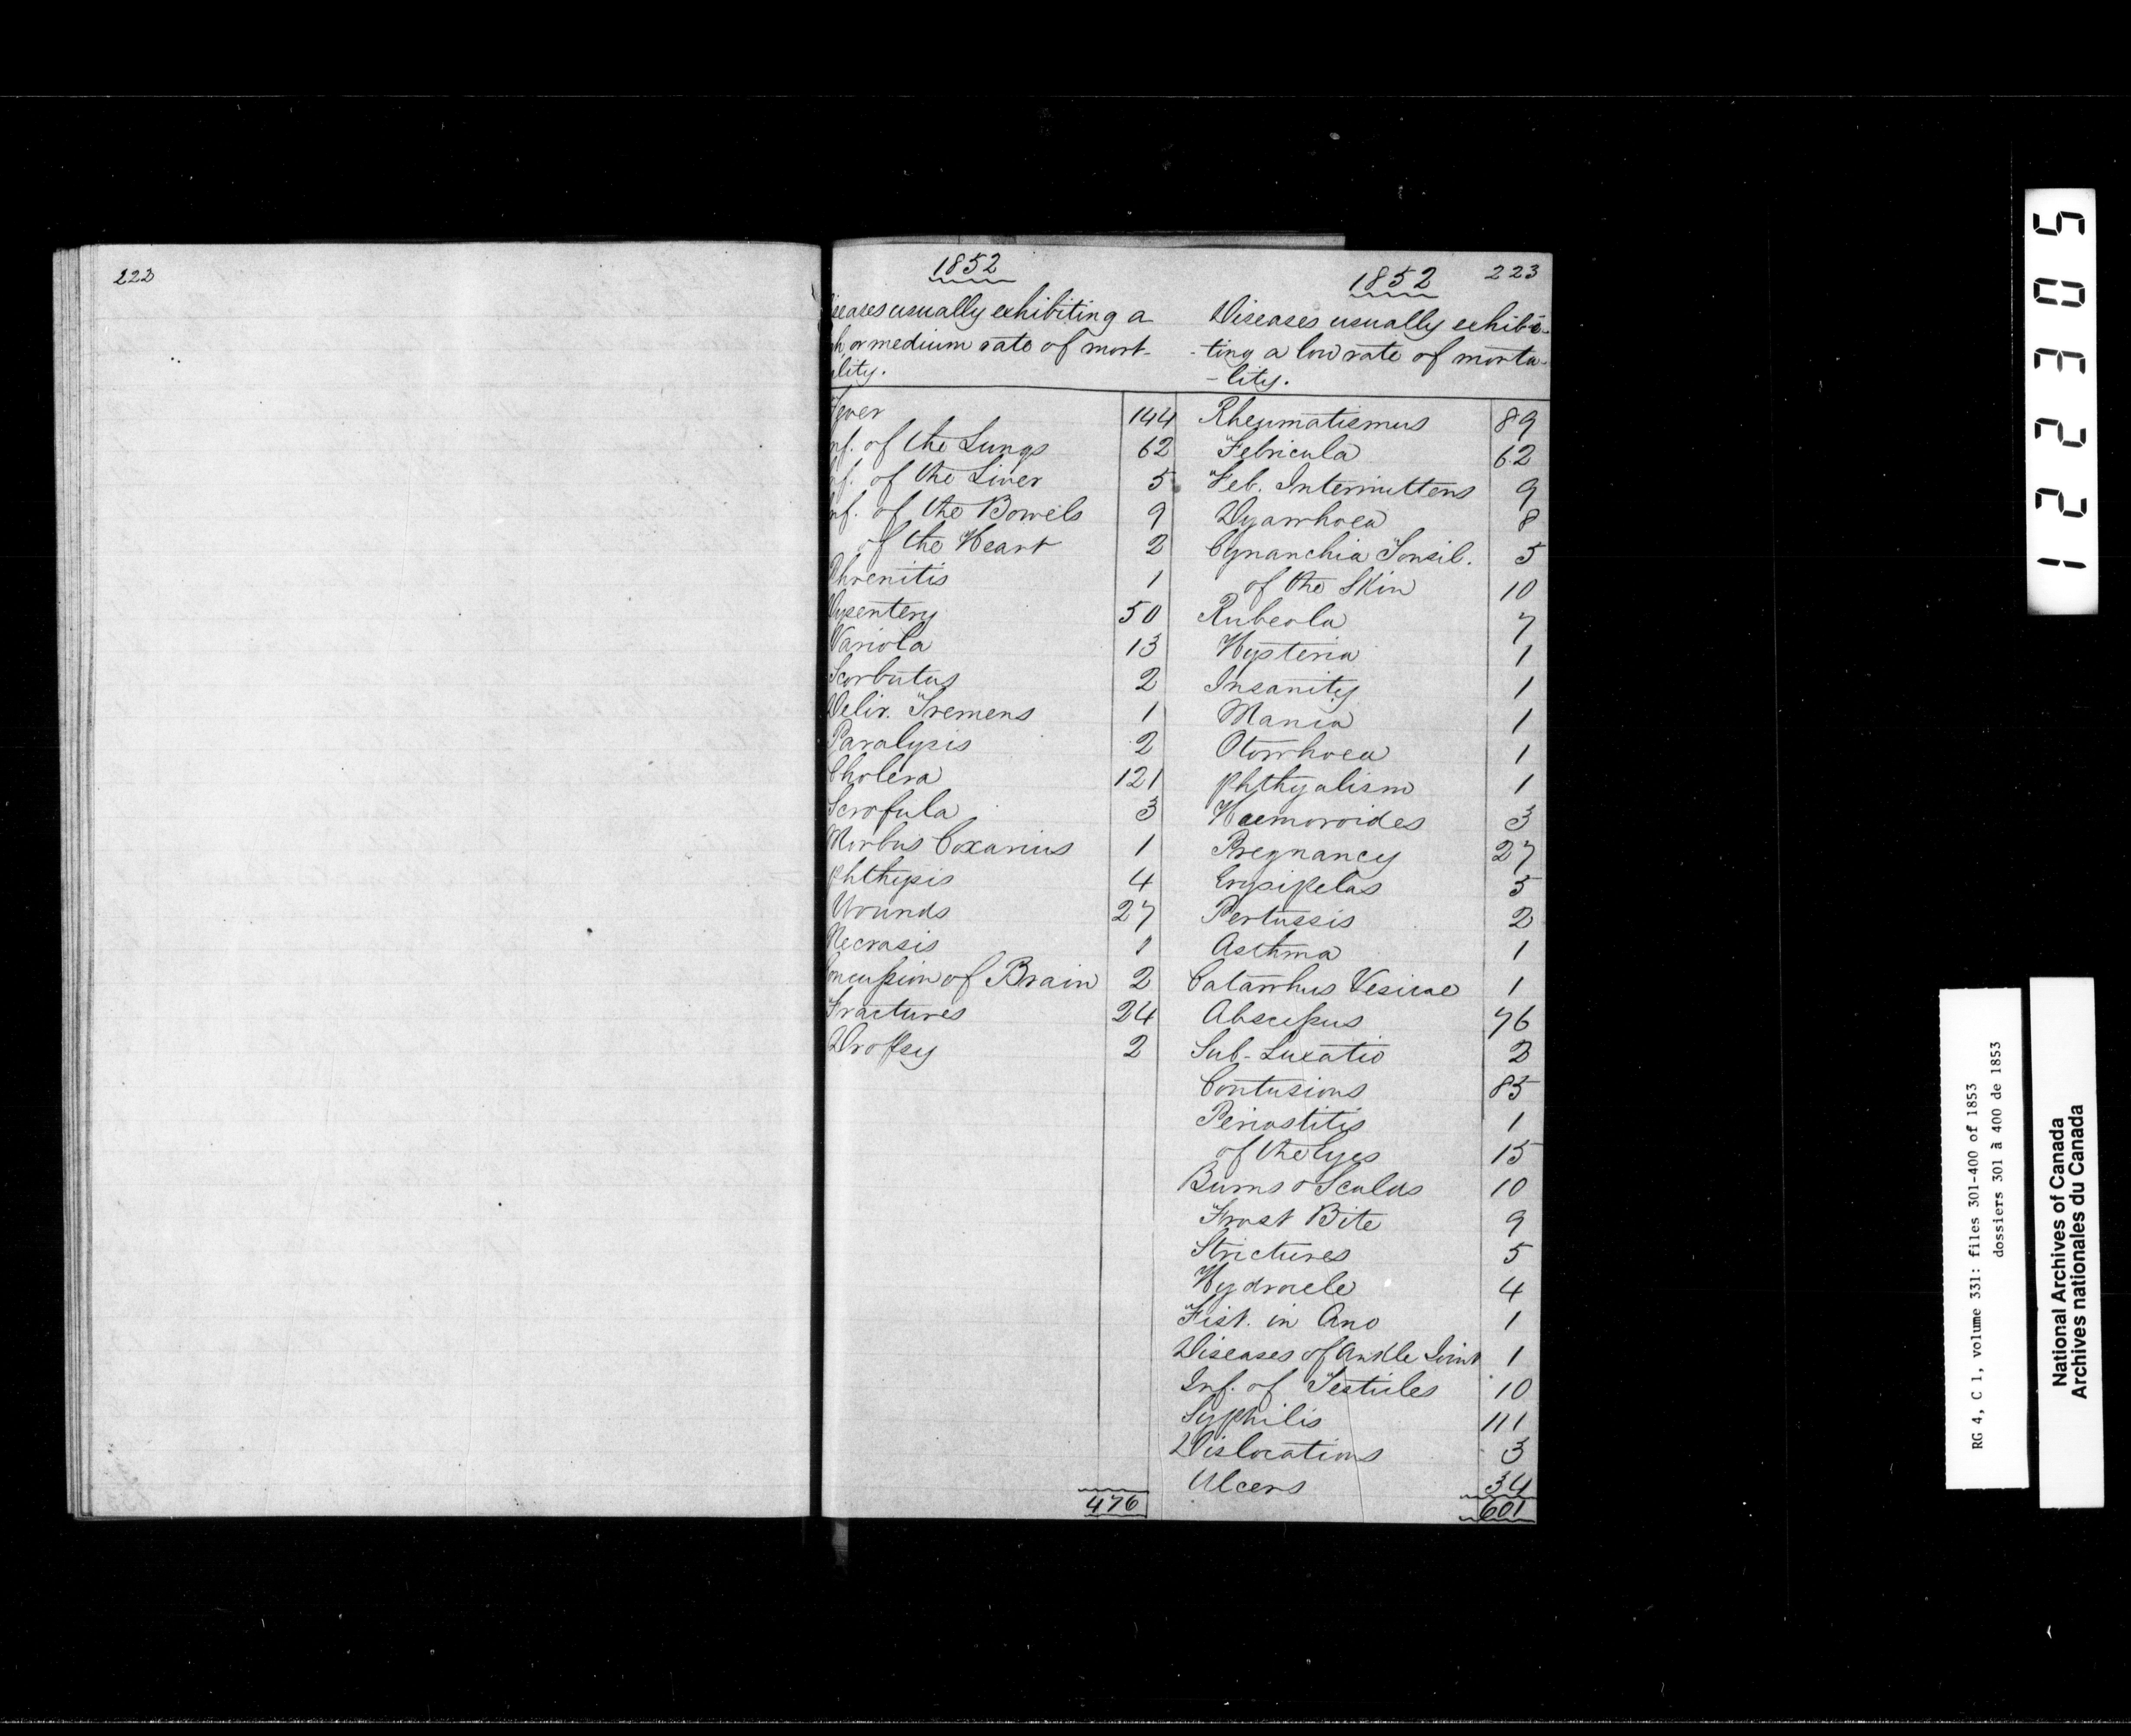 222
1852
iseases usually exhibiting a
h or medium rate of mort-
ality.
Fever 144
nf. of the Lungs 62
nf. of the Liver 5
nf. of the Bowels 9
of the Heart 2
Phrenitis 1
Dysentery 50
Variola 13
Scorbutus 2
Delir. Tremens 1
Paralysis 2
Cholera 121
Scrofula 3
Morbus Coxarius 1
Phthysis 4
Wounds 27
Necrasis 1
oncussion of Brain 2
Fractures 24
Dropsy 2
476
1852
223
Diseases usually exhibi-
-ting a low rate of morta-
-lity.
Rheumatismus 89
Febricula 62
Feb. Intermittens 9
Dyarrhoea 8
Cynanchia Tonsil. 5
of the Skin 10
Rubeola 7
Hysteria 1
Insanity 1
Mania 1
Otorrhoea 1
Phthyalism 1
Haemoroides 3
Pregnancy 27
Erysipelas 5
Pertussis 2
Asthma 1
Catarrhus Vesicae 1
Abscessus 76
Sub-Luxatio 2
Contusions 85
Periostitis 1
of the Eyes 15
Burns & Scalds 10
Frost Bite 9
Strictures 5
Hydrocele 4
Fist. in Ano 1
Diseases of Ankle Joint 1
Inf. of Testicles 10
Syphilis 111
Dislocations 3
Ulcers 34
601
122305
RG 4, C 1, volume 331: files 301-400 of 1853
dossiers 301 à 400 de 1853
National Archives of Canada
Archives nationales du Canada